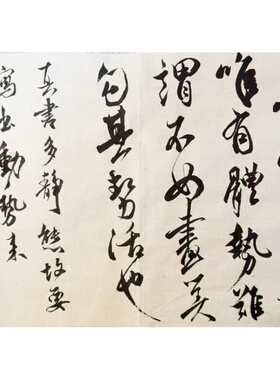 唯有體勢難
謂不畫美
其勢活也
真書多靜態故要
寫出動勢來